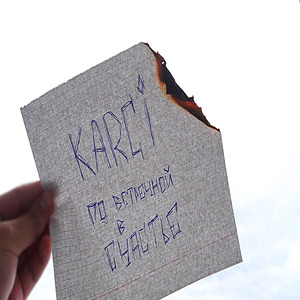 KARCI
ПО ВСТРЕЧНОЙ
В
СЧАСТЬЕ